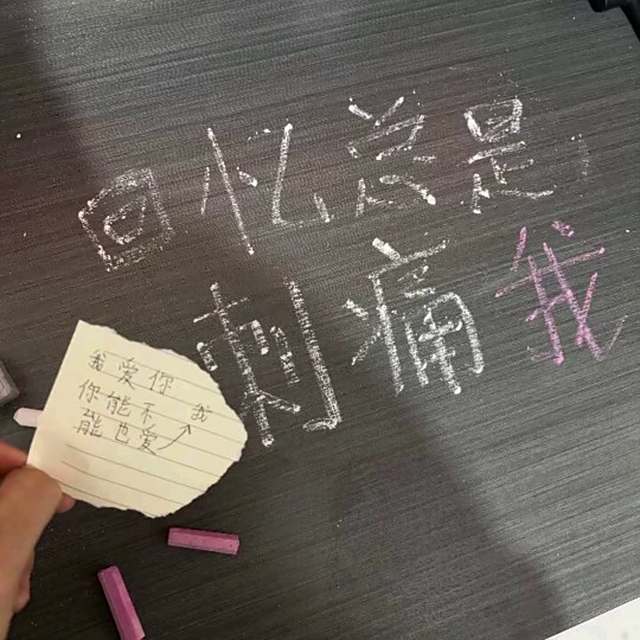 回忆总是
刺痛我
我爱你
你能不
能也爱我